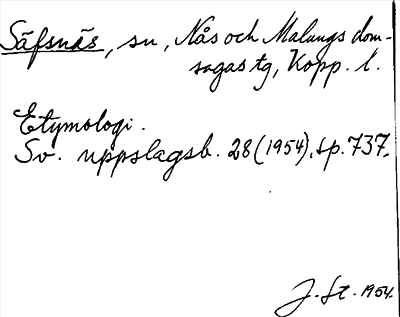 Säfsnäs, sn, Nås och Malungs dom-
sagas tg, Kopp. l.
Etymologi.
Sv. uppslagsb. 28 (1954), sp. 737.
J. St. 1954.